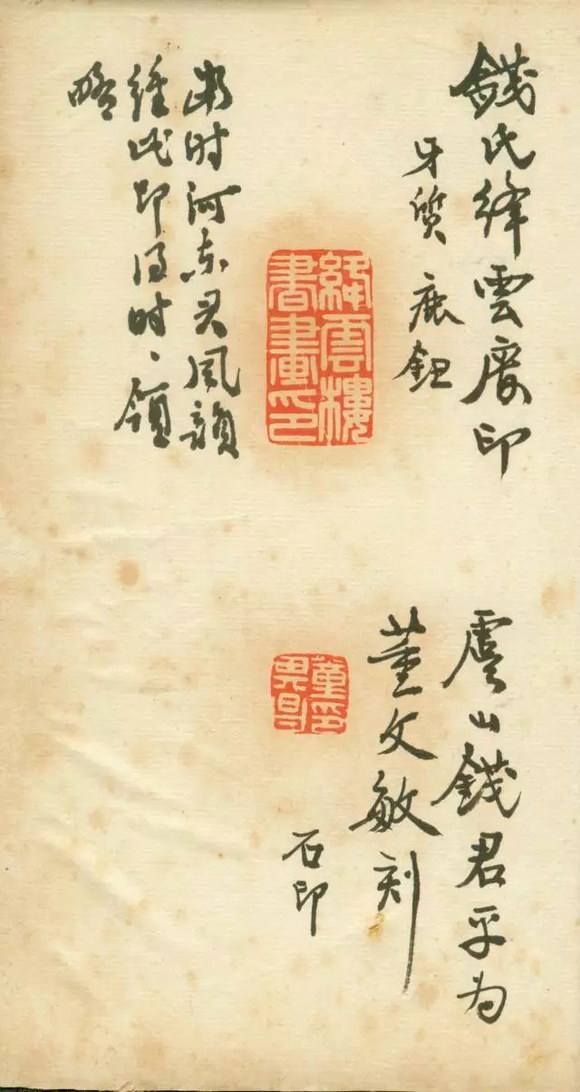 錢氏絳雲廔印
牙質 鹿鈕
絳雲樓
書畫印
时河东君風韻
此印得时、領
略
虞山錢君平为
董文敏刻
石印
董印
其昌